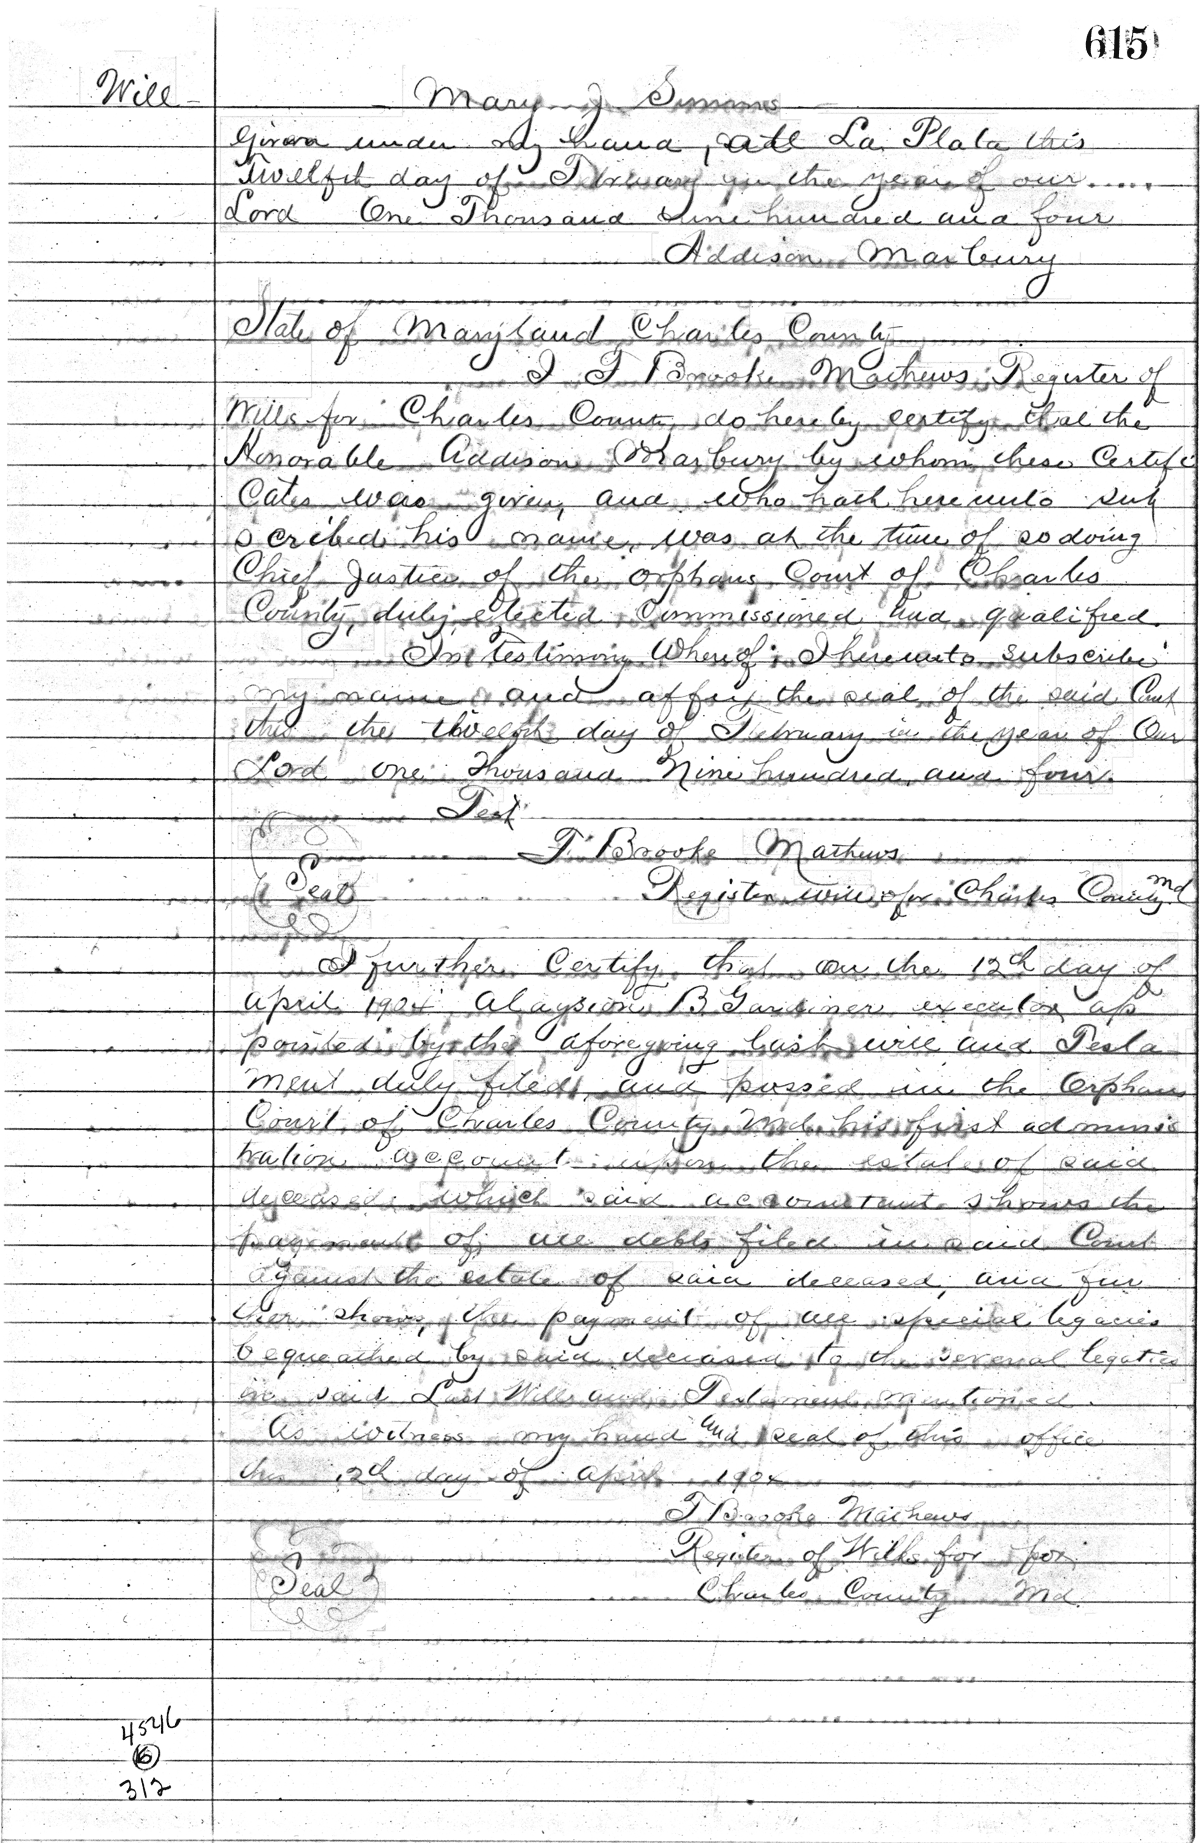 615
Will
Mary J Simms
Given under my hand, att La Plata this
Twelfth day of February in the year of our.....
Lord One Thousand nine hundred and four
Addison Marbury
State of Maryland Charles County
I T Brooke Mathews Register of
Wills for Charles County do hereby certify that the
Honorable Addison Marbury by whom these Certifi
Cates was given, and who hath hereunto sub
scribed his name, was at the time of so doing
Chief Justice of the Orphans Court of Charles
County, duly elected Commissioned and qualified.
In Testimony Whereof I hereunto subscribe
my name and affix the seal of the said Court
this the twelfth day of February in the year of Our
Lord one Thousand Nine hundred and four.
Test
T Brooke Mathews
Seal
Register will for Charles County Md
I further Certify that on the 12th day of
April 1904 B Gardiner executor ap
pointed by the aforegoing last will and Testa
ment duly filed, and passed in the Orphans
Court of Charles County Md his first adminis
tration account upon the estate of said
deceased which said accountant shows the
payment of all debts filed in said Court
against the estate of said deceased, and fur
ther shows, the payment of all special legacies
bequeathed by said deceased to the several legaties
in said Last Will and Testament mentioned.
As witness my hand and seal of this office
this 12th day of April 1904
T Brooke Mathews
Register of Wills for for
Seal
Charles County Md.
4546
6
312